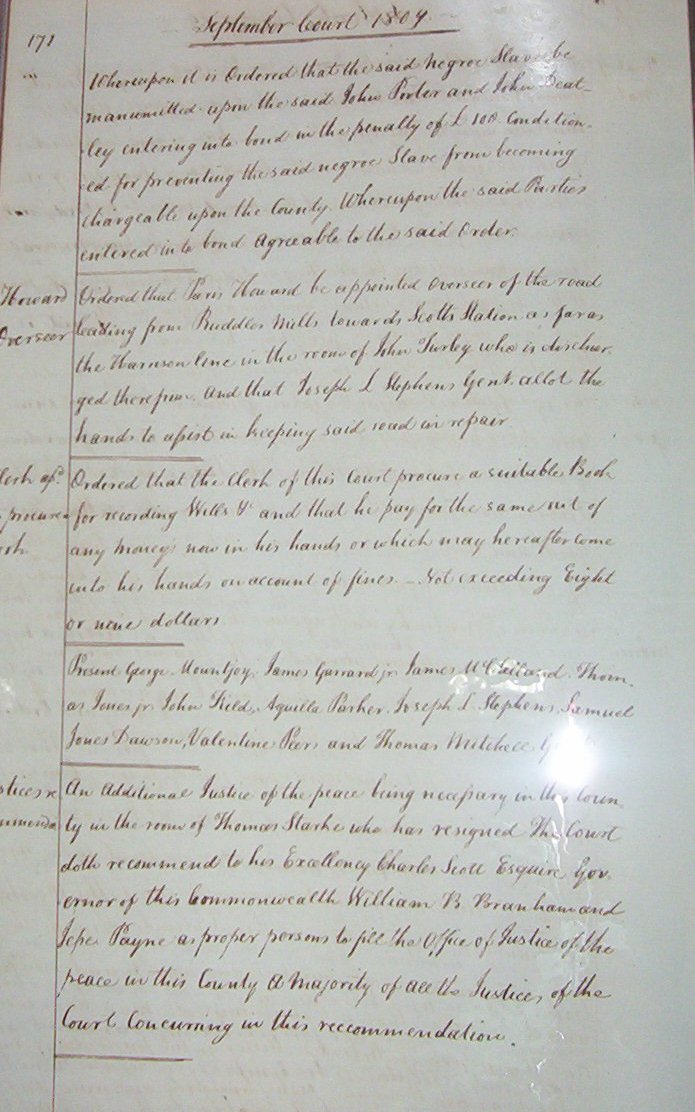 September Court 1809.
171
Whereupon it is Ordered that the said negroe Slave be
manumitted upon the said John Porter and John Beat-
ley entering into bond in the penalty of £ 100. Condition-
ed for preventing the said negroe Slave from becoming
chargeable upon the County. Whereupon the said Parties
entered into bond agreeable to the said order.
Howard
Overseer
Ordered that Paris Howard be appointed Overseer of the road
leading from Ruddles Mills towards Scotts Station as far as
the Harrison line in the room of John Turley who is dischar-
ged therefrom. And that Joseph L Stephens Gent. allot the
hands to assist in keeping said road in repair
Clerk
procure
Ordered that the Clerk of this Court procure a suitable Book
for recording Wills &c and that he pay for the same out of
any moneys now in his hands or which may hereafter come
into his hands on account of fines. - Not exceeding Eight
or nine dollars
Present George Mountjoy, James Garrard jr James McClelland. Thom-
as Jones jr John Kild, Aquilla Parker. Joseph L Stephens, Samuel
Jones Dawson, Valentine Peers and Thomas Mitchell
An additional Justice of the peace being necessary in this Coun-
ty in the room of Thomas Starke who has resigned The Court
doth recommend to his Excellency Charles Scott Esquire Gov-
ernor of this Commonwealth William B Branham and
Jesse Payne as proper persons to fill the Office of Justice of the
peace in this County a majority of all the Justices of the
Court Concurring in this reccommendation.